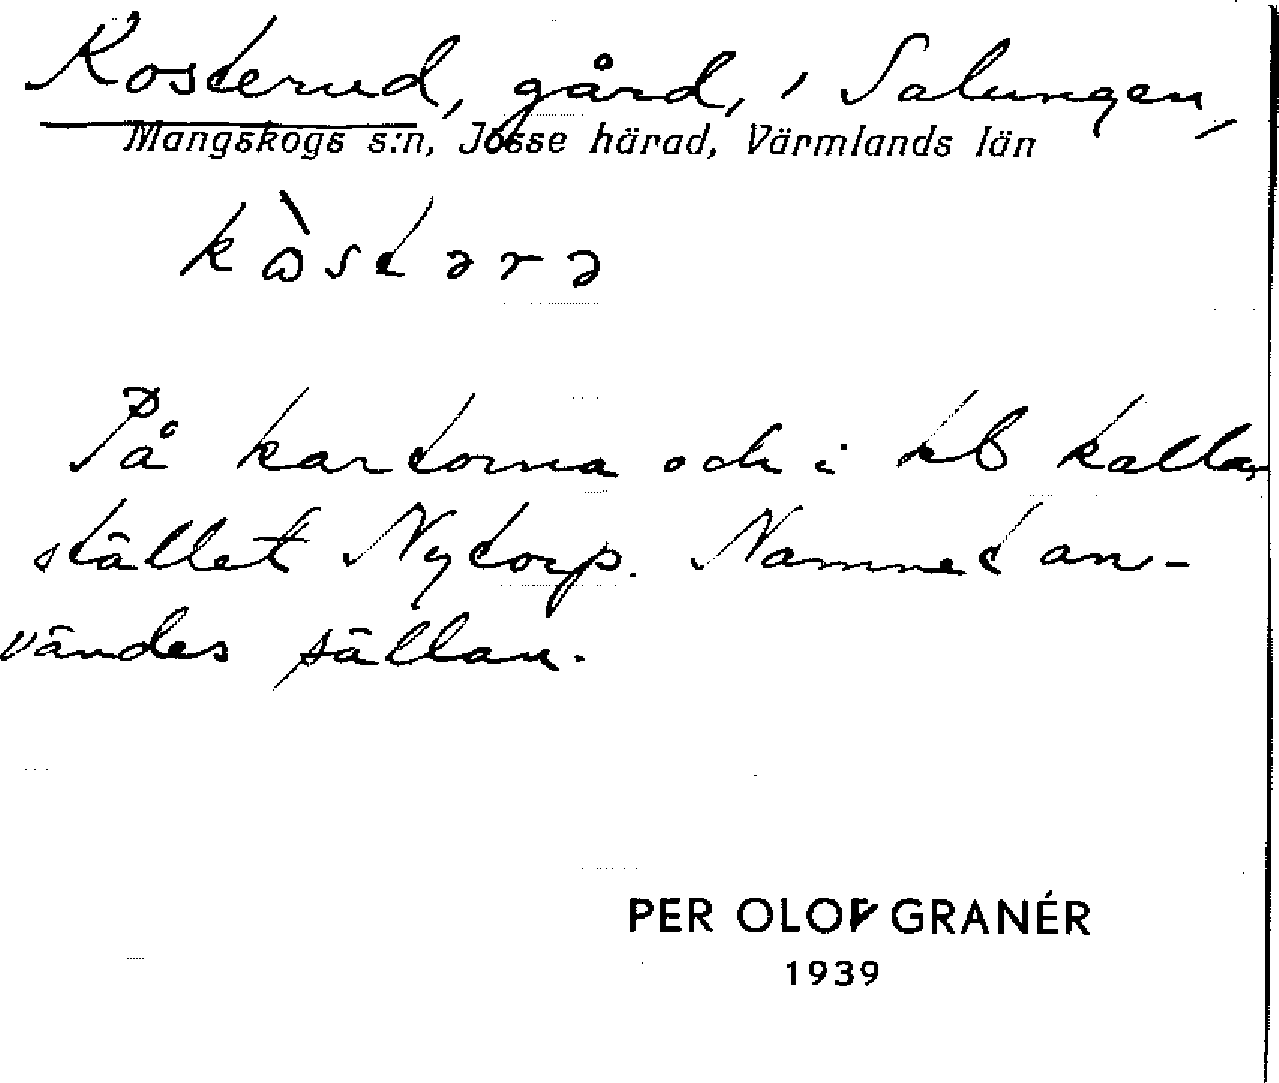 Kosterud, gård, i Salungen,
Mangskogs s:n, Jösse härad, Värmlands län
kɷ̀stərə
På kartorna och i kb kallas
stället Nytorp. Namnet an-
vändes sällan.
PER OLOF GRANÉR
1939